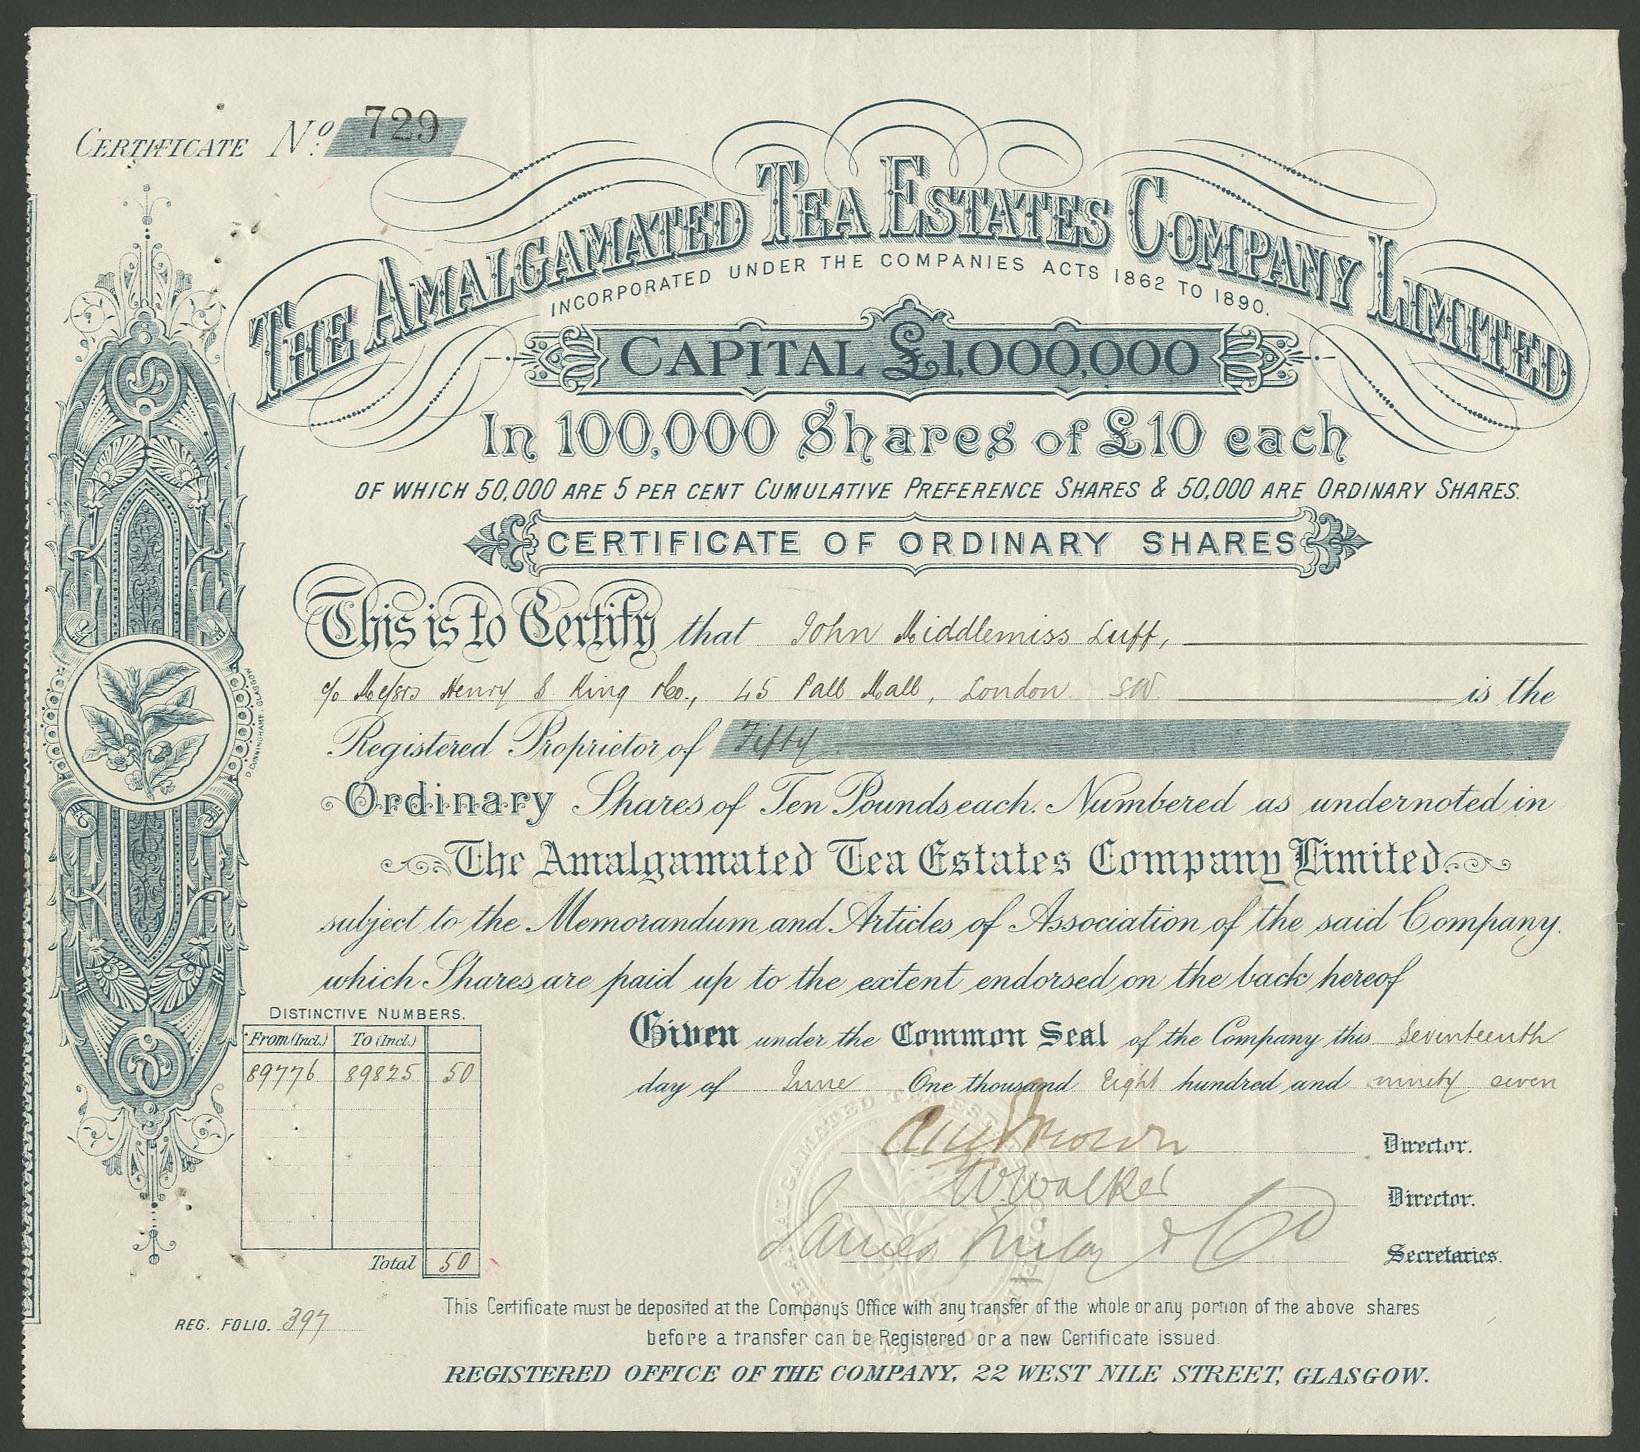 CERTIFICATE No. 729
THE AMALGAMATED TEA ESTATES COMPANY LIMITED
INCORPORATED UNDER THE COMPANIES ACTS 1862 TO 1890.
CAPITAL £1,000,000
In 100,000 Shares of £10 each
OF WHICH 50,000 ARE 5 PER CENT CUMULATIVE PREFERENCE SHARES & 50,000 ARE ORDINARY SHARES.
CERTIFICATE OF ORDINARY SHARES
This is to Certify that John Middlemiss Luff,
c/o Messrs Henry S. King & Co., 45 Pall Mall, London SW. is the
Registered Proprietor of Fifty
Ordinary Shares of Ten Pounds each. Numbered as undernoted in
The Amalgamated Tea Estates Company Limited.
subject to the Memorandum and Articles of Association of the said Company.
which Shares are paid up to the extent endorsed on the back hereof
D. CUNNINGHAME, GLASGOW
DISTINCTIVE NUMBERS.
From (Incl.) To (Incl.)
89776 89825 50
Total 50
Given under the Common Seal of the Company this Seventeenth
day of June One thousand Eight hundred and ninety seven
Brown Director.
W. Walker Director.
James Finlay & Co Secretaries.
REG. FOLIO. 397
This Certificate must be deposited at the Company's Office with any transfer of the whole or any portion of the above shares
before a transfer can be Registered or a new Certificate issued.
REGISTERED OFFICE OF THE COMPANY, 22 WEST NILE STREET, GLASGOW.